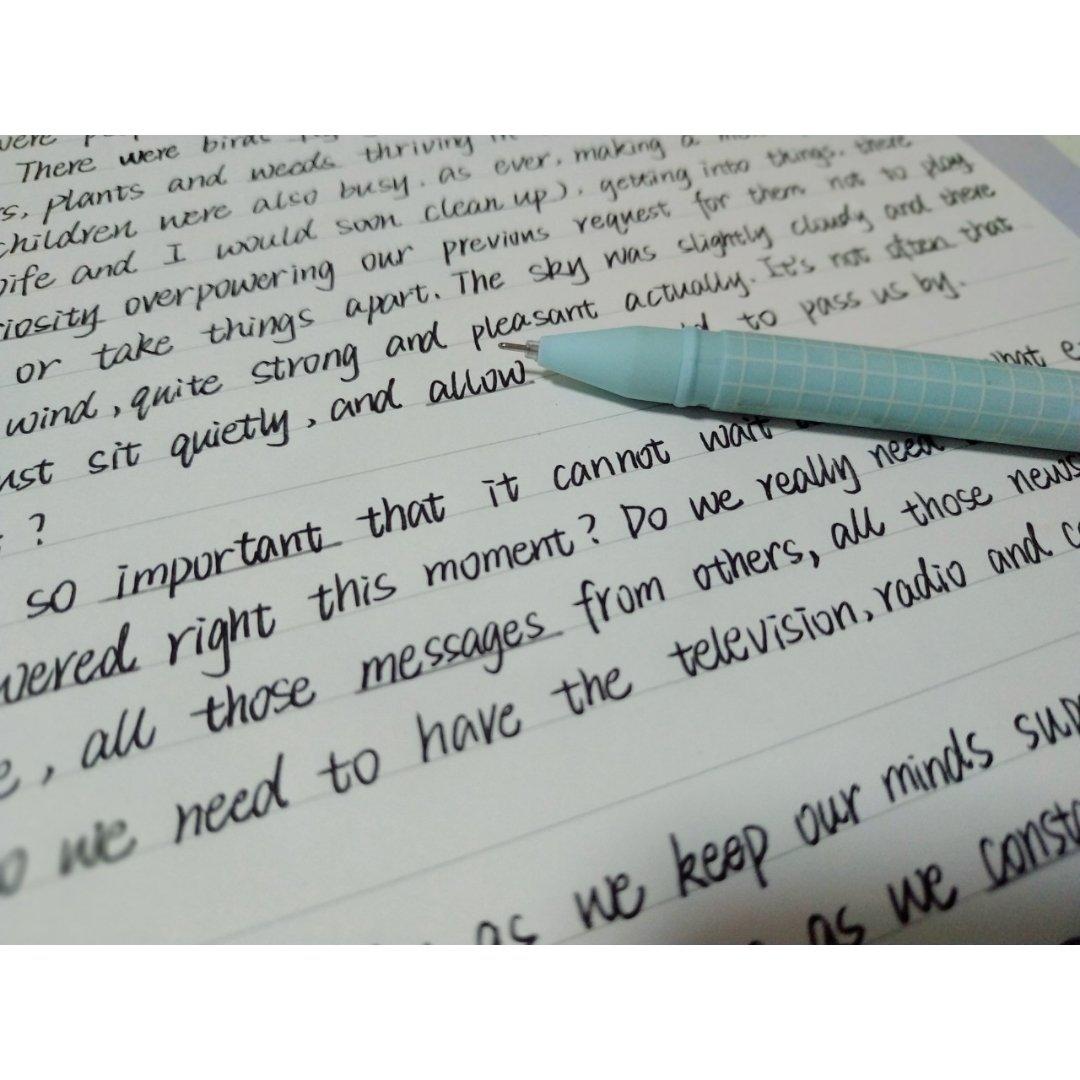 There were birds
plants and weeds thriving
children were also busy, as ever, making a
and I would soon clean up), getting into things, there
overpowering our previous request for them not to play
or take things apart. The sky was slightly cloudy and there
wind, quite strong and pleasant actually. It's not often that
sit quietly, and allow to pass us by.
?
so important that it cannot wait
right this moment? Do we really need
, all those messages from others, all those news
we need to have the television, radio and
as we keep our minds
as we